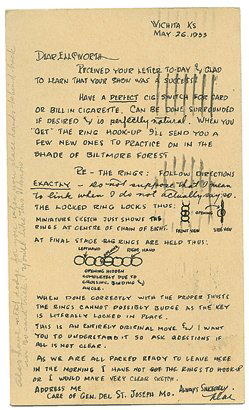 WICHITA KS
MAY 26, 1953
DEAR ELLSWORTH
RECEIVED YOUR LETTER TO-DAY & GLAD
TO LEARN THAT YOUR SHOW WAS A SUCCESS
HAVE A PERFECT CIG SWITCH FOR CARD
OR BILL IN CIGARETTE. CAN BE DONE SURROUNDED
IF DESIRED & IS perfectly natural. WHEN YOU
"GET" THE RING HOOK-UP I'LL SEND YOU A
FEW NEW ONES TO PRACTICE ON IN THE
SHADE OF BILTMORE FOREST
RE - THE RINGS: FOLLOW DIRECTIONS
EXACTLY - do not suppose that I mean
to link when I do not actually say so.
THE LOCKED RING LOCKS THUS:
MINIATURE SKETCH JUST SHOWS THE
RINGS AT CENTRE OF CHAIN OF EIGHT.
FRONT VIEW
SIDE VIEW
AT FINAL STAGE BIG RINGS ARE HELD THUS:
LEFT HAND
RIGHT HAND
OPENING HIDDEN
COMPLETELY DUE TO
CROSSING, BINDING &
ANGLE.
OPENING
WHEN DONE CORRECTLY WITH THE PROPER TWISTS
THE RINGS CANNOT POSSIBLY BUDGE AS THE KEY
IS LITERALLY LOCKED IN PLACE.
THIS IS AN ENTIRELY ORIGINAL MOVE & I WANT
YOU TO UNDERSTAND IT SO ASK QUESTIONS IF
ALL IS NOT CLEAR.
AS WE ARE ALL PACKED READY TO LEAVE HERE
IN THE MORNING I HAVE NOT GOT THE RINGS TO HOOKUP
OR I WOULD MAKE VERY CLEAR SKETCH.
ADDRESS ME
ALWAYS SINCERELY
CARE OF GEN. DEL ST. JOSEPH MO.